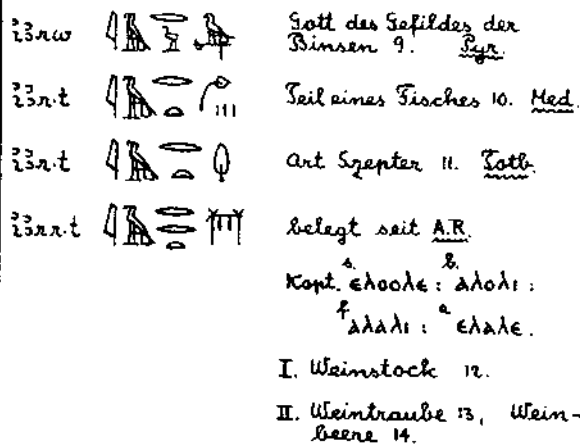 ı͗ꜣrw Gott des Gefildes der
Binsen 9. Pyr.
ı͗ꜣr·t Teil eines Fisches 10. Med.
ı͗ꜣr·t Art Szepter 11. Totb.
ı͗ꜣrr·t belegt seit A.R.
Kopt. s. ⲉⲗⲟⲟⲗⲉ : b. ⲁⲗⲟⲗⲓ :
f ⲁⲗⲁⲗⲓ : a ⲉⲗⲁⲗⲉ.
I. Weinstock 12.
II. Weintraube 13, Wein-
beere 14.